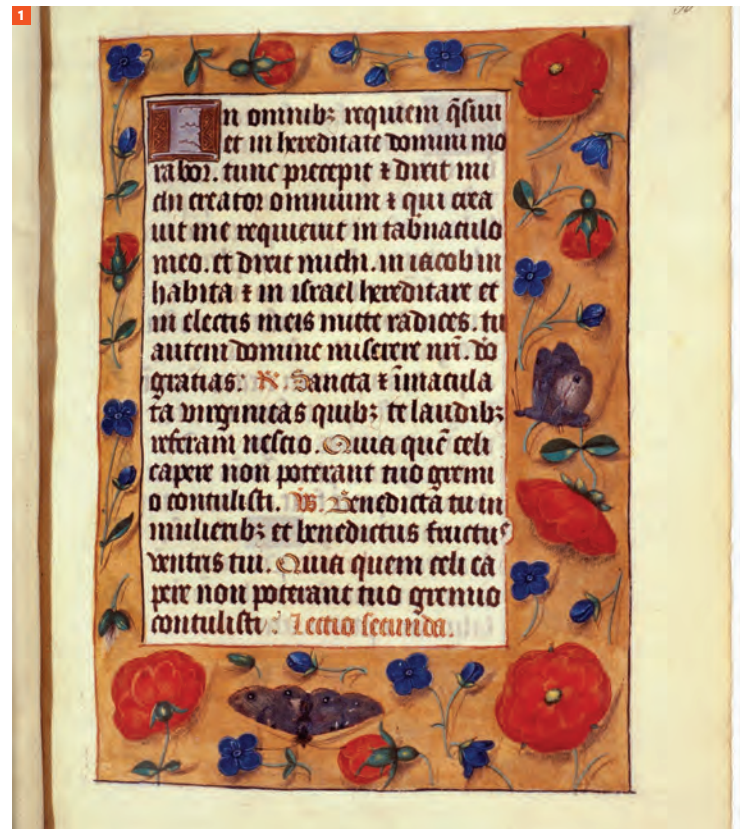 1
In omnibꝫ requiem q̄siui
et in hereditate domini mo
rabor. tunc precepit ⁊ dixit mi
chi creator omnium ⁊ qui crea
uit me requieuit in tabnaculo
meo. et dixit michi. in iacob in
habita ⁊ in israel hereditare et
in electis meis mitte radices. tu
autem domine miserere nr̄i. do
gratias. R. Sancta ⁊ īmacula
ta virginitas quibꝫ te laudibꝫ
referam nescio. Quia quē celi
capere non poterant tuo gremi
o contulisti. V. Benedicta tu in
mulieribꝫ et benedictus fructus
ventris tui. Quia quem celi ca
pere non poterant tuo gremio
contulisti. Lectio secunda.